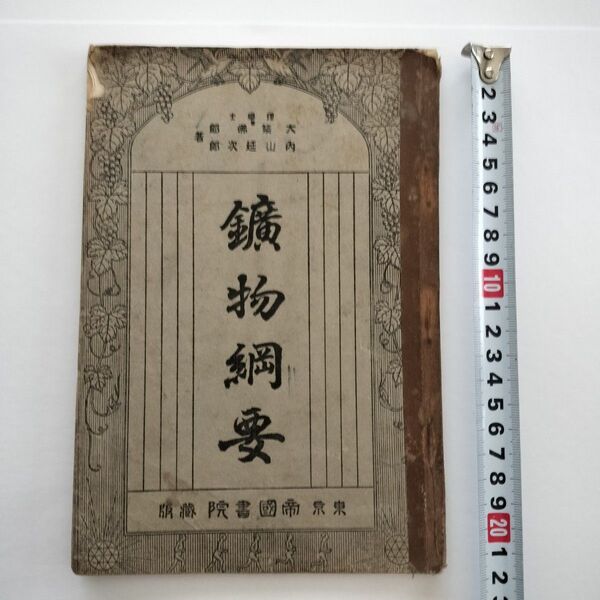 理學士
大築佛郎
内山延次郎
著
鑛物綱要
東京 帝國書院藏版
2
3
4
5
6
7
8
9
10
1
2
3
4
5
6
7
8
9
20
1
2